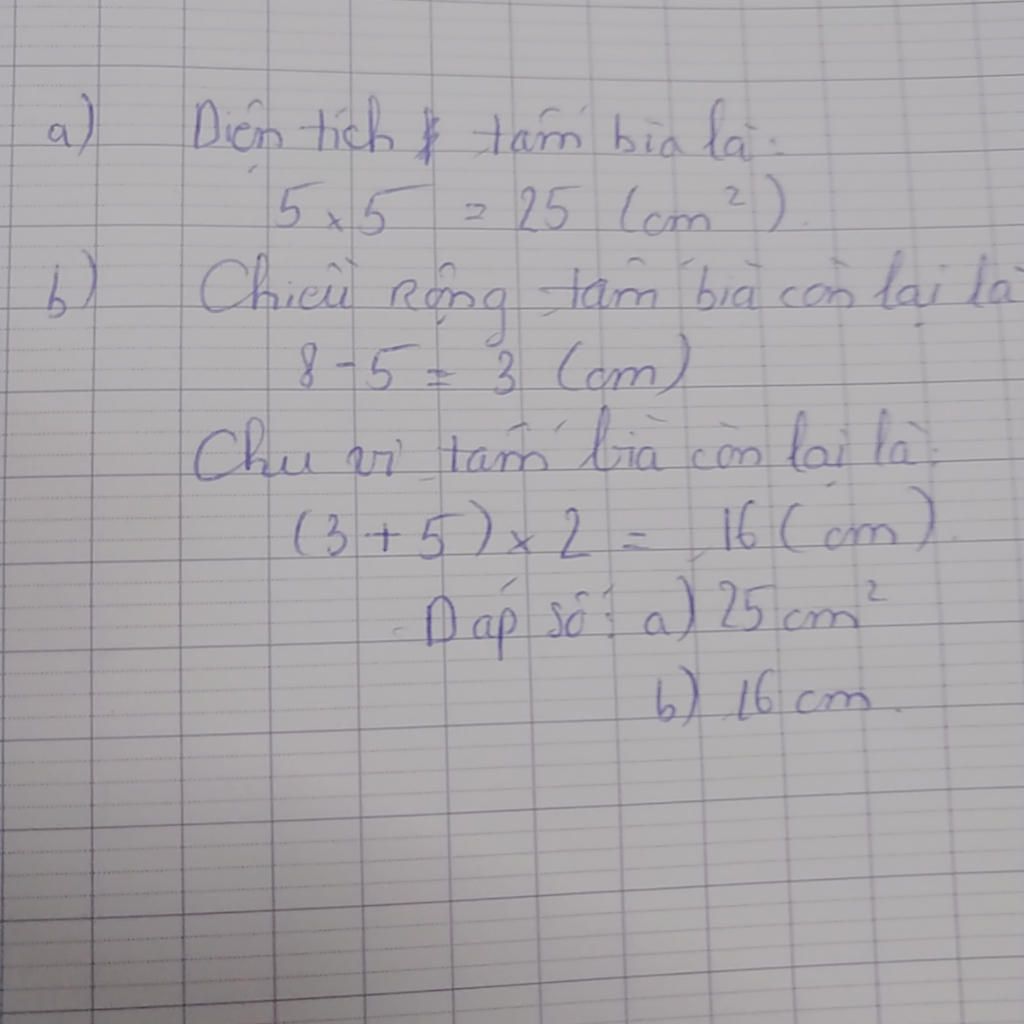 a) Diện tích tấm bìa là:
5 x 5 = 25 (cm²)
b) Chiều rộng tấm bìa còn lại là
8 - 5 = 3 (cm)
Chu vi tấm bìa còn lại là:
(3 + 5) x 2 = 16 (cm)
Đáp số: a) 25 cm²
b) 16 cm.